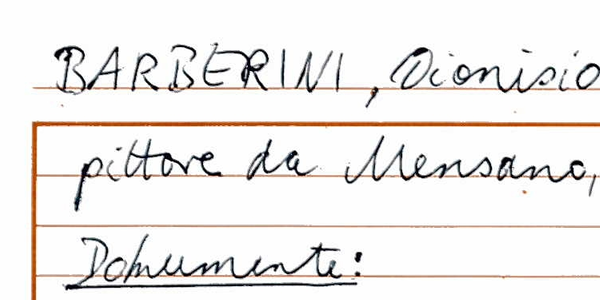 BARBERINI, Dionisio
pittore da Mensano,
Dokumente: